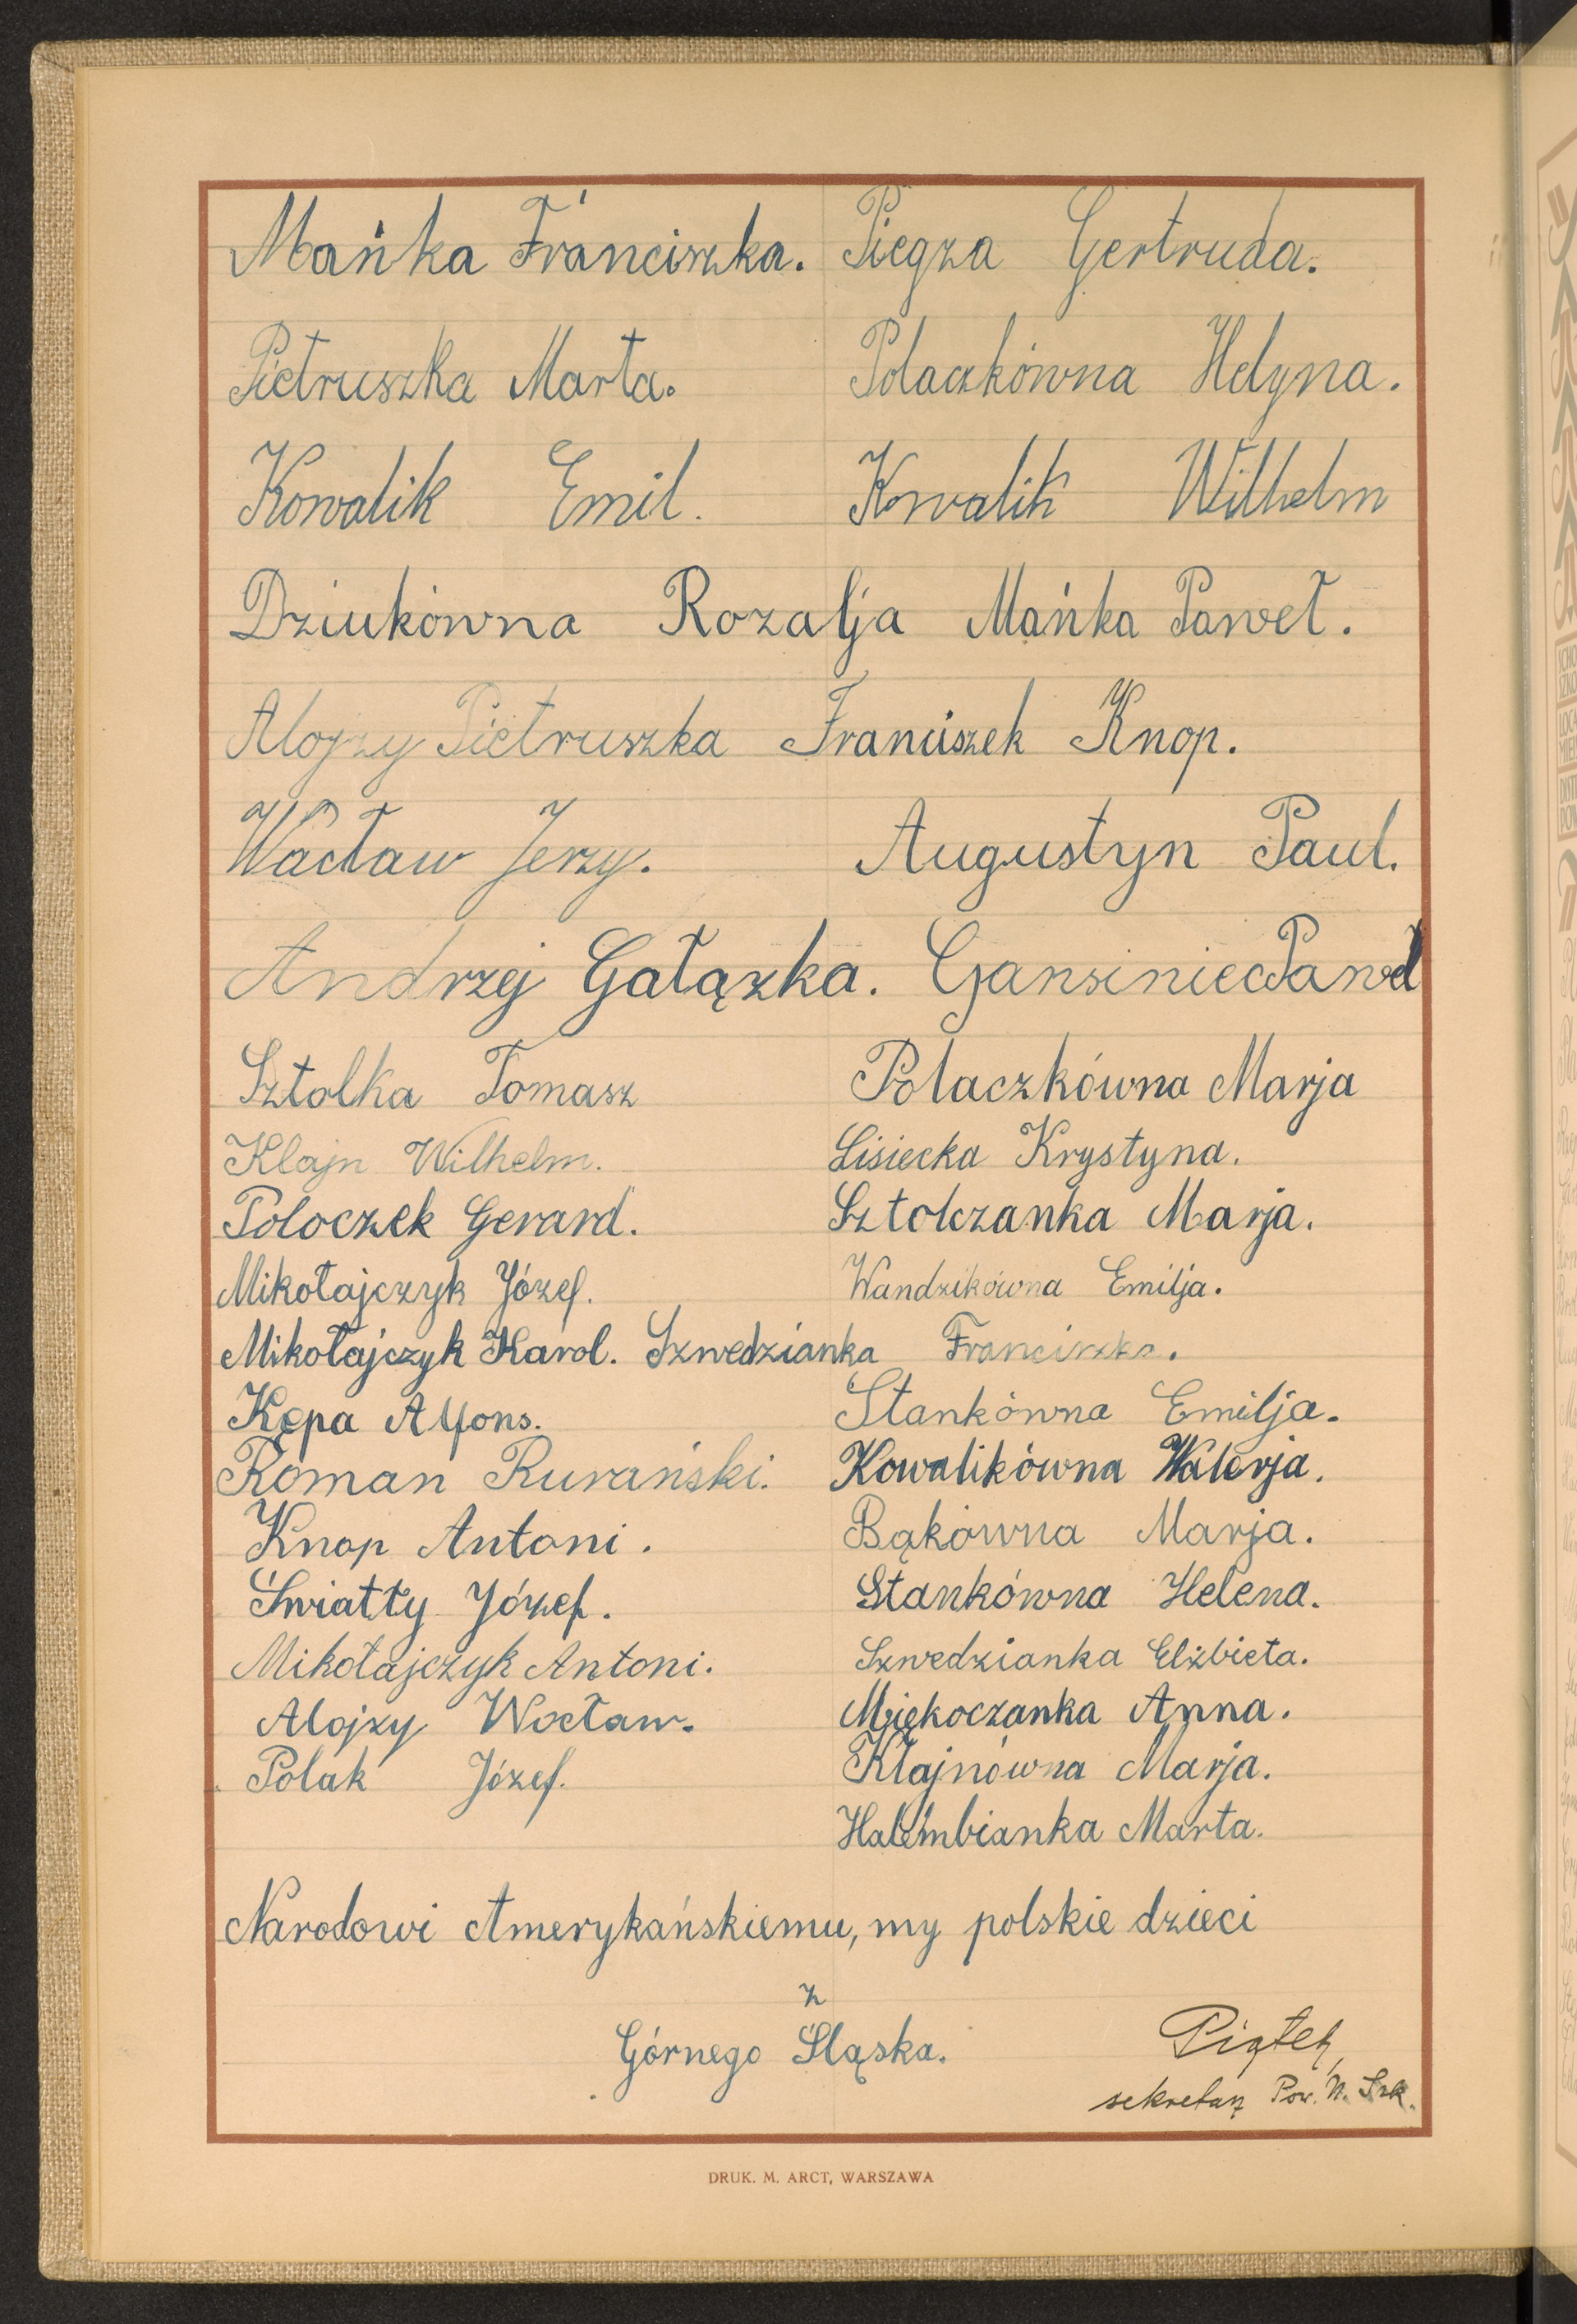 Mańka Franciszka. Piegza Gertruda.
Pietruszka Marta. Polaczkówna Helyna.
Kowalik Emil. Kowalik Wilhelm
Dziukówna Rozalja Mańka Paweł.
Alojzy Pietruszka Franciszek Knop.
Wacław Jerzy. Augustyn Paul.
Andrzej Gałązka. Gansiniec Paweł
Sztolka Tomasz Polaczkówna Marja
Klajn Wilhelm. Lisiecka Krystyna.
Poloczek Gerard. Sztolczanka Marja.
Mikołajczyk Józef. Wandzikówna Emilja.
Mikołajczyk Karol. Szwedzianka Franciszka.
Kępa Alfons. Stankówna Emilja.
Roman Rurański. Kowalikówna Walerja.
Knop Antoni. Bąkówna Marja.
Światty Józef. Stankówna Helena.
Mikołajczyk Antoni. Szwedzianka Elżbieta.
Alojzy Wocław. Miękoczanka Anna.
Polak Józef. Kłajnówna Marja.
Halembianka Marta.
Narodowi Amerykańskiemu, my polskie dzieci
z
Górnego Śląska.
Piątek
sekretarz Pow. N. Szk.
DRUK. M. ARCT, WARSZAWA